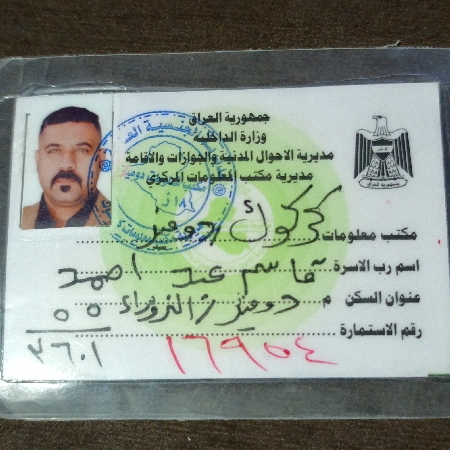 جمهورية العراق
وزارة الداخلية
مديرية الاحوال المدنية والجوازات والاقامة
مديرية مكتب المعلومات المركزي
مكتب معلومات: كركوك / دوميز
اسم رب الاسرة: قاسم عبد احمد
عنوان السكن م دوميز / الزوراء
رقم الاستمارة ١٦٩٥٤
٥٥
٣٦٠١